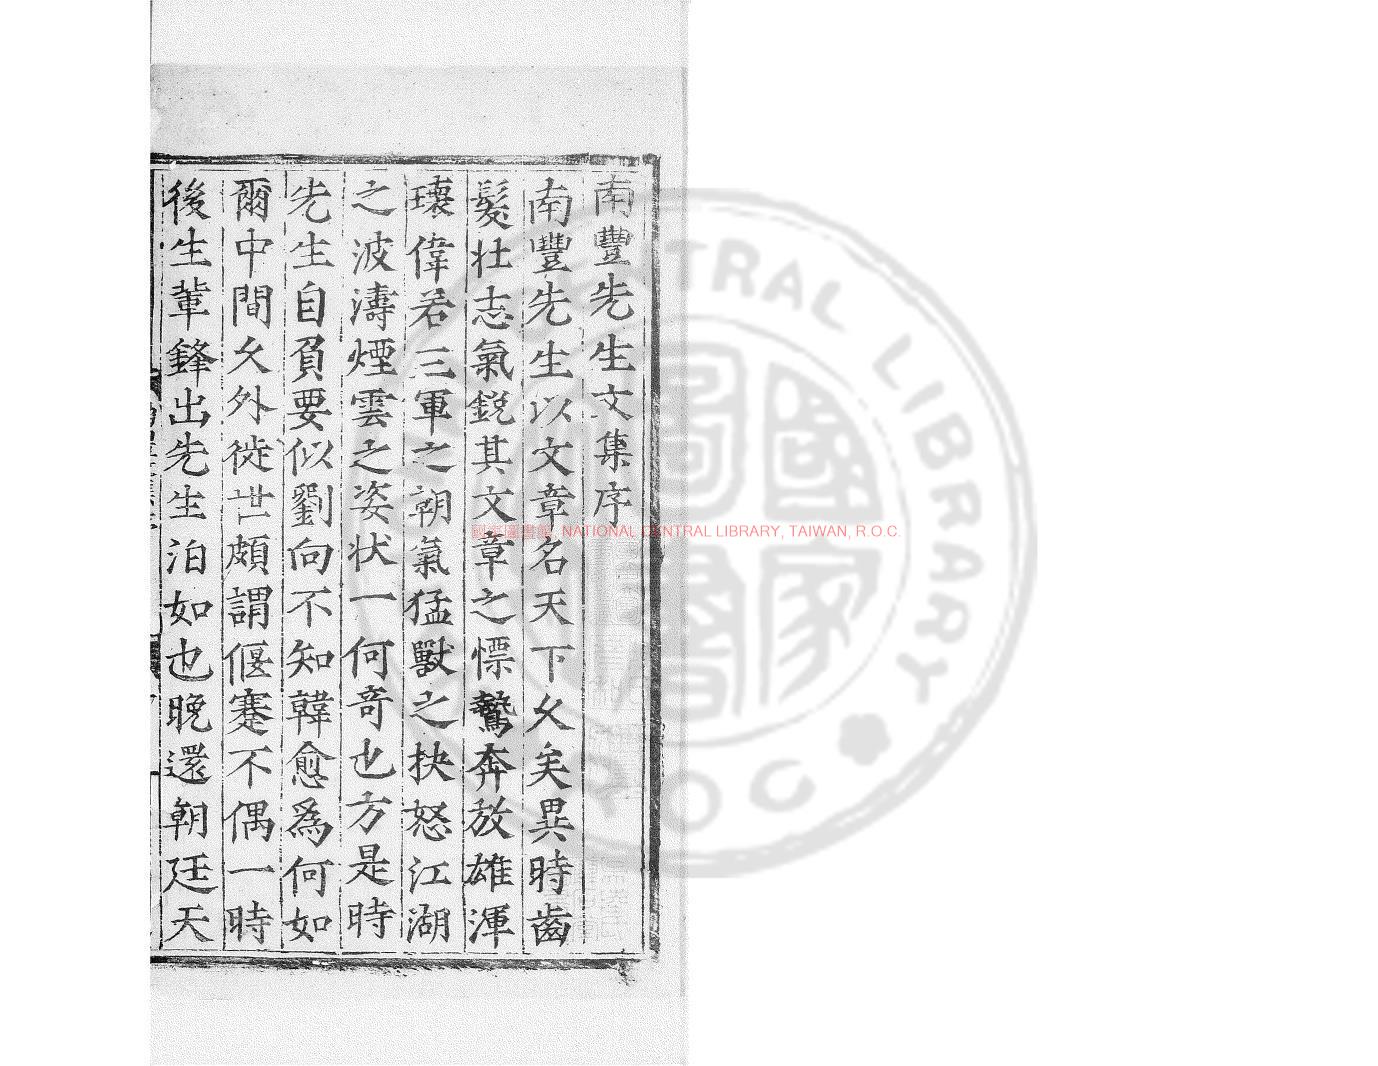 南豐先生文集序
南豐先生以文章名天下久矣異時齒
髮壯志氣銳其文章之慓鷙奔放雄渾
瓌偉若三軍之朝氣猛獸之抉怒江湖
之波濤煙雲之姿狀一何奇也方是時
先生自負要似劉向不知韓愈為何如
爾中間久外徙世頗謂偃蹇不偶一時
後生輩鋒出先生泊如也晚還朝廷天
國家圖書館, NATIONAL CENTRAL LIBRARY, TAIWAN, R.O.C.